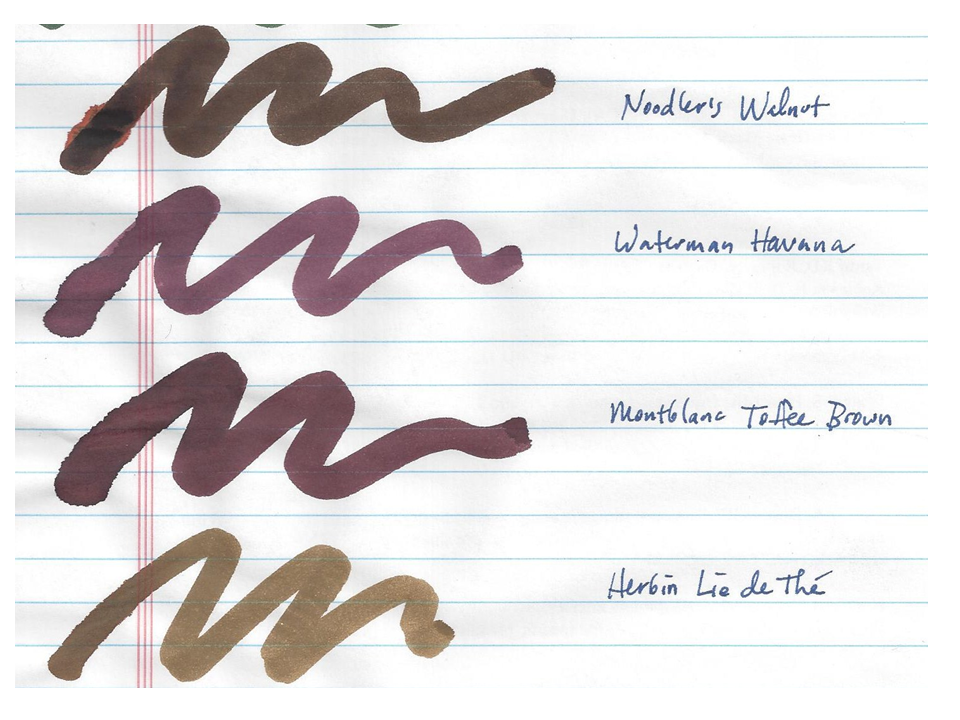 Noodler's Walnut
Waterman Havana
Montblanc Toffee Brown
Herbin Lie de Thé